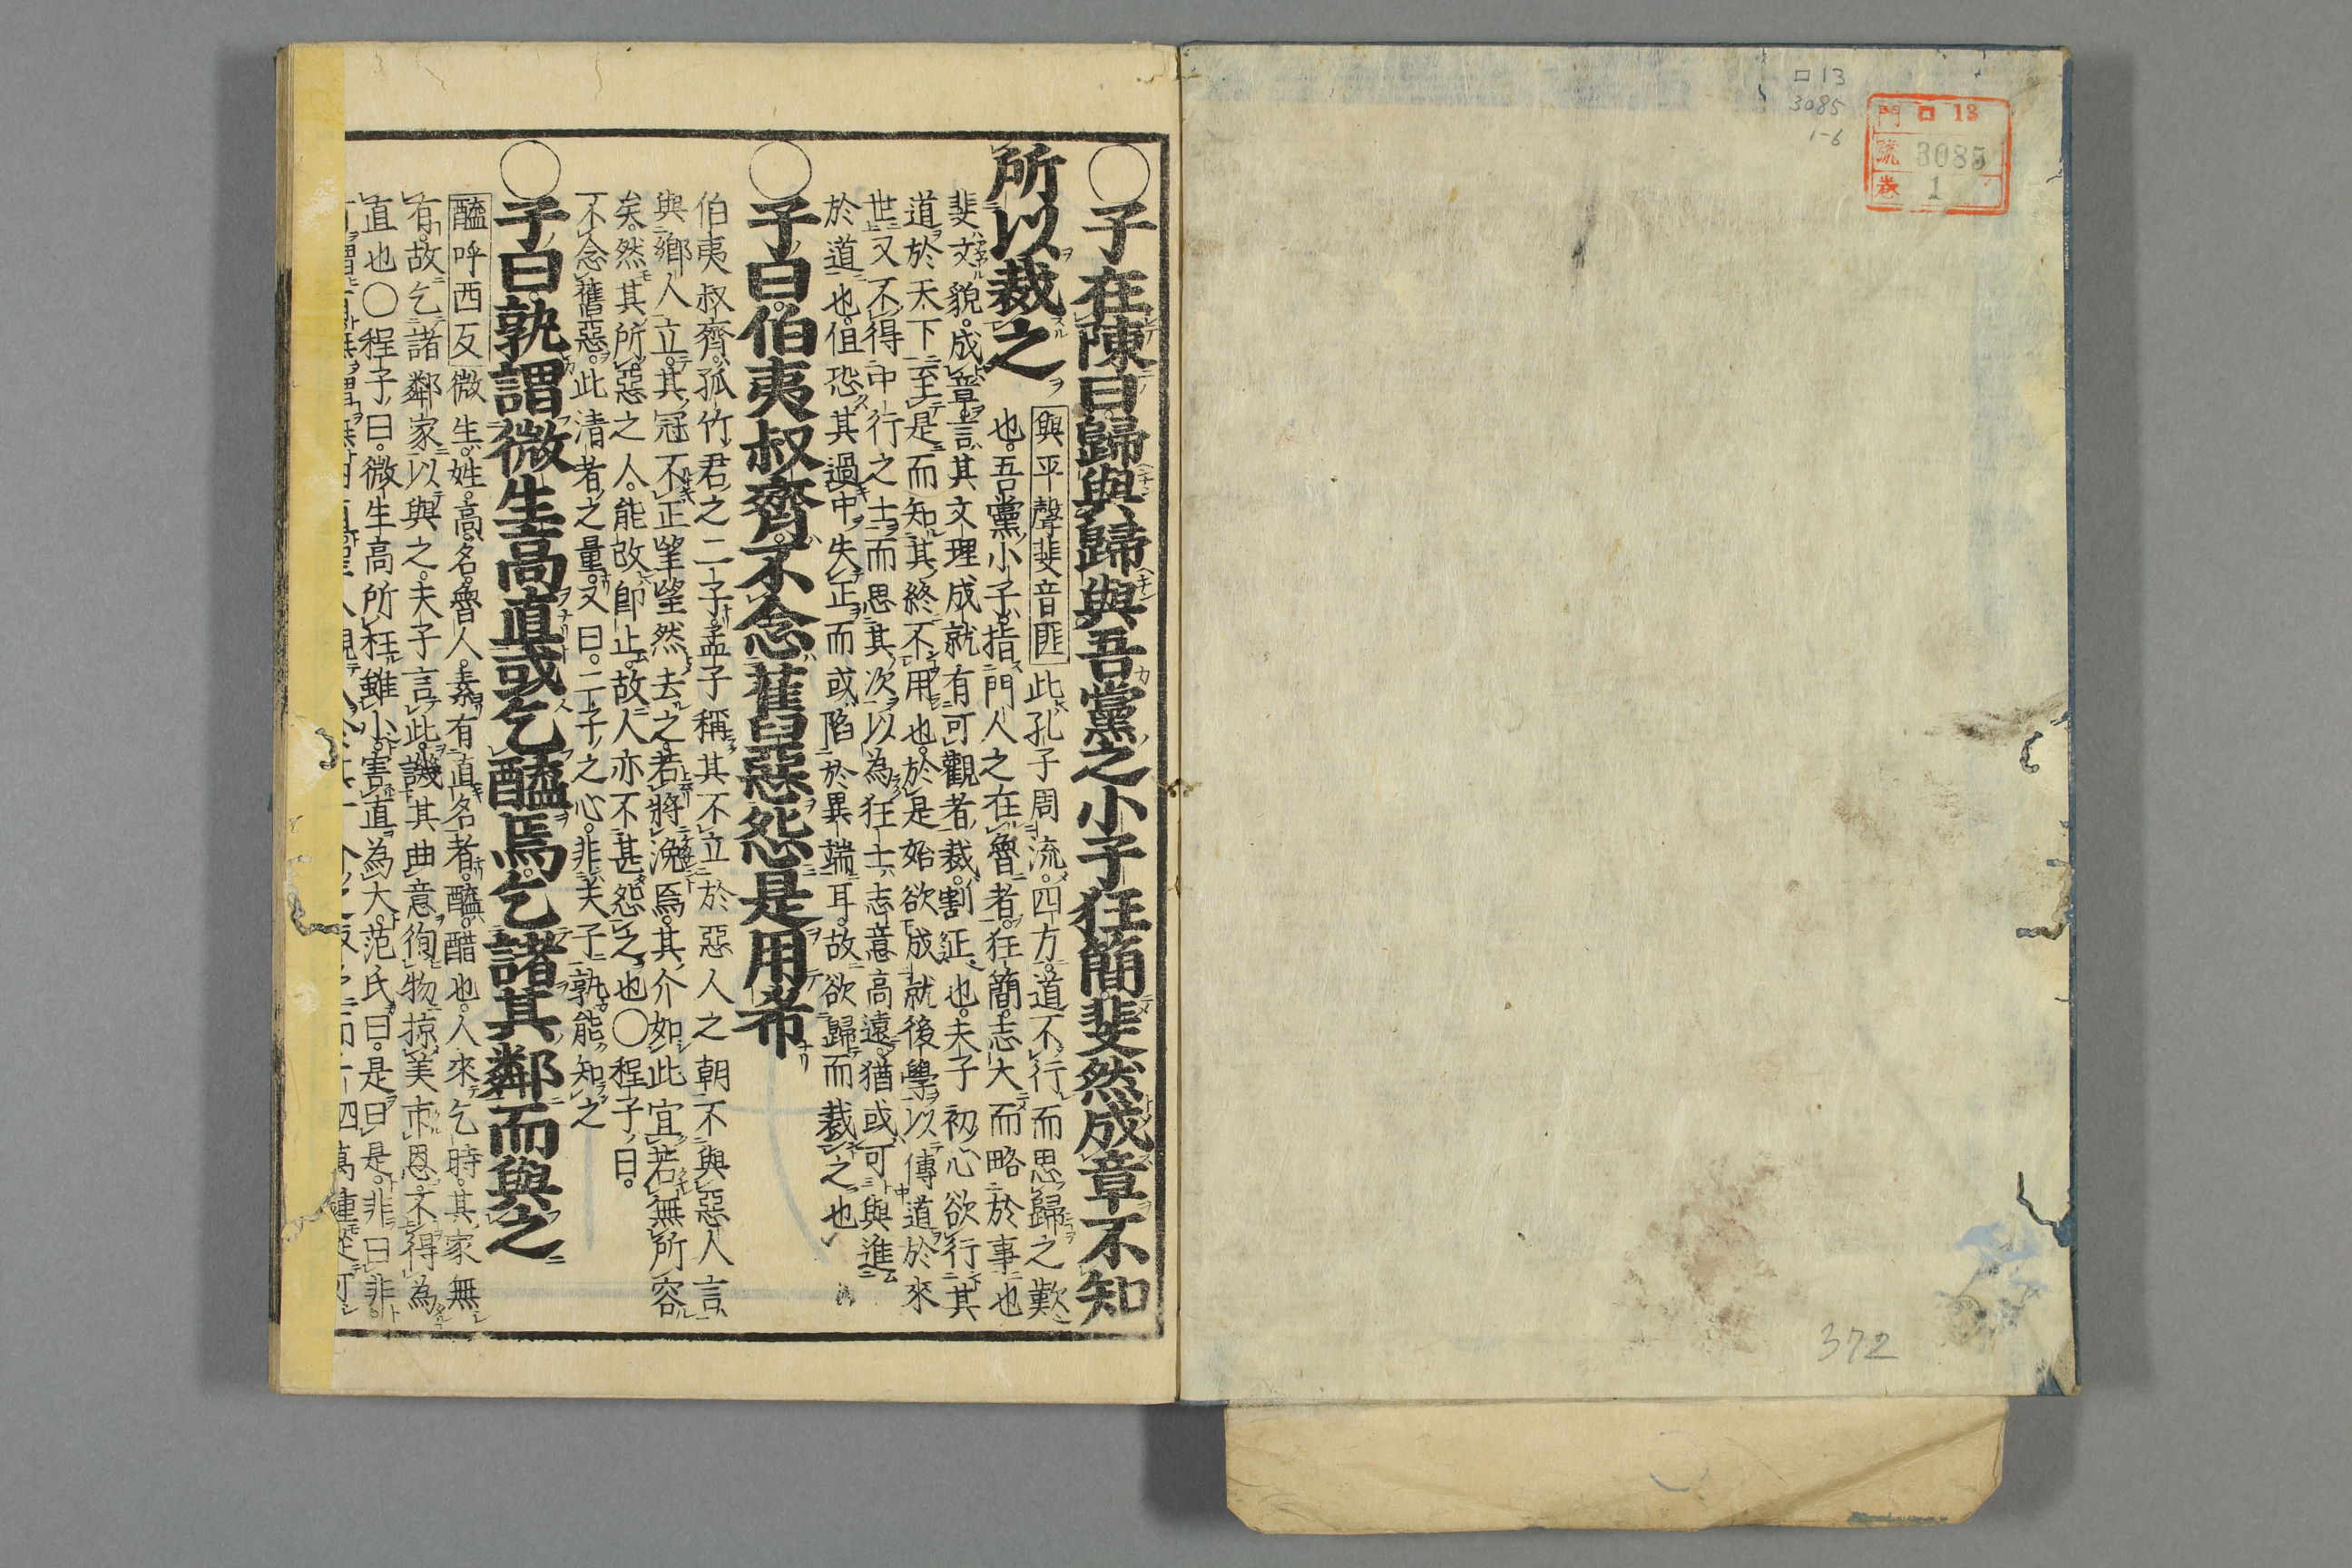 口13
3085
1-6
門 口 13
號 3085
卷 1
372
○子在陳曰歸與歸與吾黨之小子狂簡斐然成章不知
所以裁之
與平聲斐音匪 此孔子周流四方道不行而思歸之歎
也。吾黨小子。指門人之在魯者。狂簡。志大而略於事也
斐文貌。成章。言其文理成就有可觀者。裁。割正也。夫子初心欲行其
道於天下。至是而知其終不用也。於是始欲成就後學。以傳道於來
世。又不得中行之士而思其次。以為狂士。志意高遠。猶或可與進
於道也。但恐其過中失正而或陷於異端耳。故欲歸而裁之也
○子曰。伯夷叔齊。不念舊惡怨是用希
伯夷叔齊。孤竹君之二子。孟子稱其不立於惡人之朝不與惡人言
與鄉人立。其冠不正望望然去之。若將浼焉。其介如此宜若無所容
矣。然其所惡之人。能改卽止。故人亦不甚怨之也○程子曰。
不念舊惡。此清者之量。又曰。二子之心。非夫子孰能知之
○子曰。孰謂微生高直或乞醯焉。乞諸其鄰而與之
醯呼西反 微生。姓。高。名。魯人。素有直名者。醯。醋也。人來乞時。其家無
有。故乞諸鄰家以與之。夫子言此。譏其曲意徇物。掠美市恩。不得為
直也○程子曰。微生高所枉雖小。害直為大。范氏曰。是曰是。非曰非。